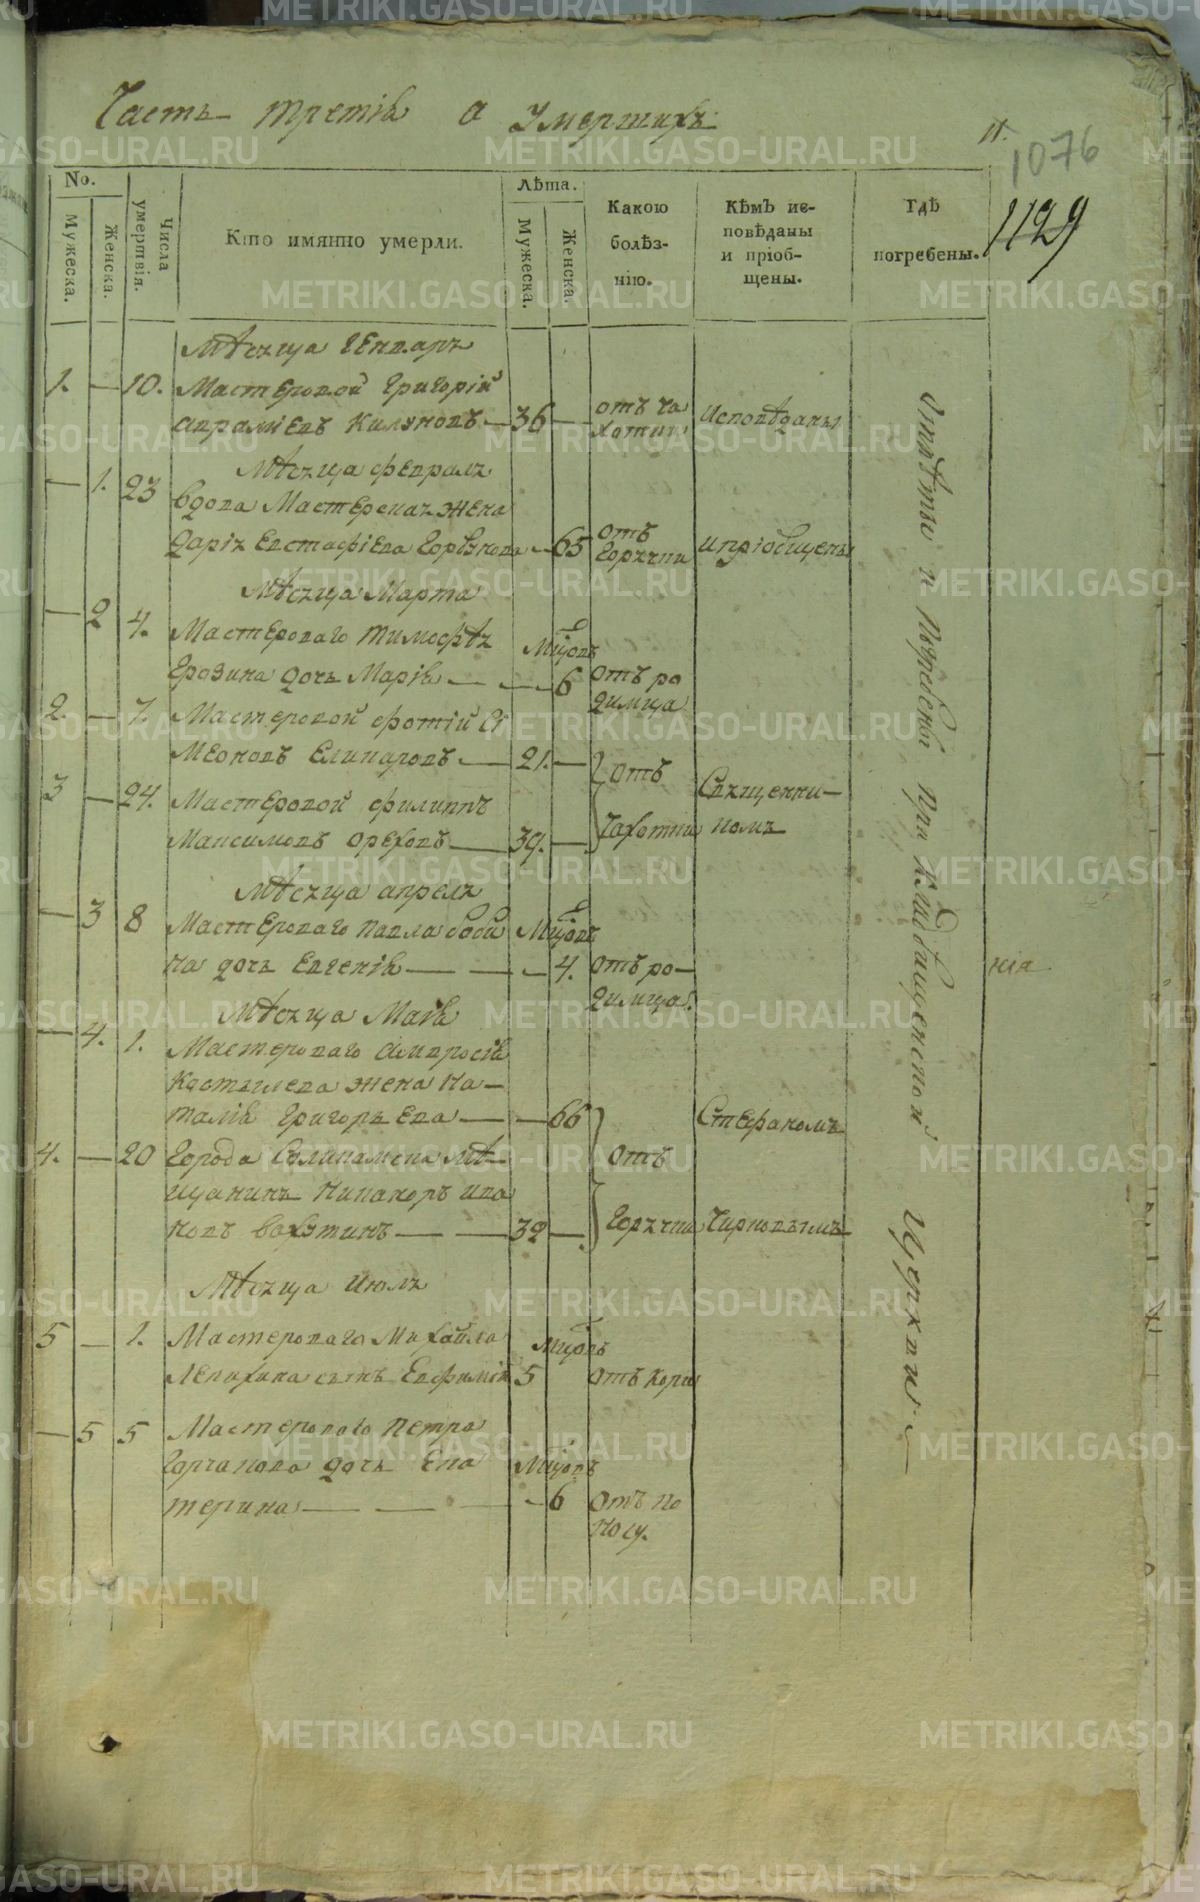 Часть третія о умершихъ
11.
1076
1129
No.
Мужеска.
Женска.
Числа умертвія.
Кто имянно умерли.
Лѣта.
Мужеска.
Женска.
Какою болѣз-нію.
Кѣмъ ис-повѣданы и пріоб-щены.
Гдѣ погребены.
Мѣсяца Генваря
1. — 10. Мастеровой Григорій
Авраміевъ — 36 — отъ чахотки Исповѣданы
Мѣсяца февраля
— 1. 23 вдова Мастерская жена
Дарія Евстафіева Горбунова — 65 отъ Горячки и пріобщены
Мѣсяца Марта
— 2 4. Мастероваго Тимофѣя
Ерозина дочь Марія — — 6 отъ родимца
2. — 7. Мастеровой Фотій Си
меоновъ — 21. — отъ
3 — 24. Мастеровой Филиппъ Священни-
Максимовъ Ореховъ — 39. — Чахотки комъ
Мѣсяца апреля
— 3 8 Мастероваго Павла Боби
на дочь Евгенія — — 4. отъ ро-
димца.
Мѣсяца Маія
— 4. 1. Мастероваго Амвросія
Костылева жена На-
талія Григорьева — — 66 Стефаномъ
4. — 20 Города Соликамска мѣ- отъ
щанинъ Никаноръ Ива
новъ Вахтинъ — — 39 — Горячки Чирковымъ
Мѣсяца Июля
5 — 1. Мастероваго Михайла
Лепихина сынъ Евфимій 5 отъ кори
— 5 5 Мастероваго Петра
Горчакова дочь Ека
терина — — — 6 отъ по
носу.
Отпѣты и Погребены При Кладбищенской Церкви. —
ния
METRIKI.GASO-URAL.RU